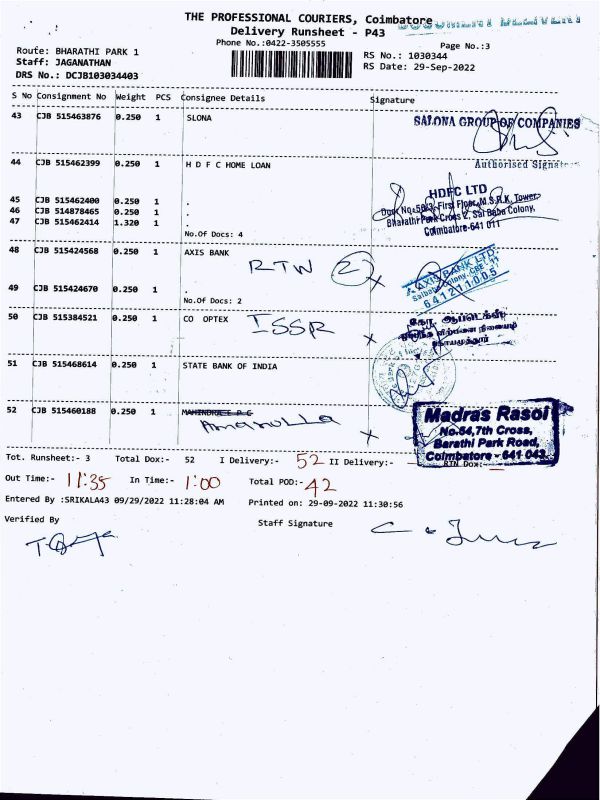 THE PROFESSIONAL COURIERS, Coimbatore
Delivery Runsheet - P43
Phone No.:0422-3505555
Page No.:3
Route: BHARATHI PARK 1
RS No.: 1030344
Staff: JAGANATHAN
RS Date: 29-Sep-2022
DRS No.: DCJB103034403
S No Consignment No Weight PCS Consignee Details Signature
43 CJB 515463876 0.250 1 SLONA
SALONA GROUP OF COMPANIES
Authorised
44 CJB 515462399 0.250 1 H D F C HOME LOAN
HDFC LTD
45 CJB 515462400 0.250 1 .
Door No:50/3, First Floor, M.S.R.K. Tower,
46 CJB 514878465 0.250 1 .
Bharathi Park Cross 2, Sai Baba Colony,
47 CJB 515462414 1.320 1 .
Coimbatore-641 011
No.Of Docs: 4
48 CJB 515424568 0.250 1 AXIS BANK
RTW 2
AXIS BANK LTD.
Saibaba Colony, CBE-11
641211005
49 CJB 515424670 0.250 1 .
No.Of Docs: 2
50 CJB 515384521 0.250 1 CO OPTEX ISSR x
51 CJB 515468614 0.250 1 STATE BANK OF INDIA
52 CJB 515460188 0.250 1 MAHINDRA E P C
Amanulla x
Madras Rasoi
No.54,7th Cross,
Barathi Park Road,
Coimbatore - 641 043.
Tot. Runsheet:- 3 Total Dox:- 52 I Delivery:- 52 II Delivery:- — RTN Dox:- —
Out Time:- 11:35 In Time:- 1:00 Total POD:- 42
Entered By :SRIKALA43 09/29/2022 11:28:04 AM Printed on: 29-09-2022 11:30:56
Verified By
Staff Signature